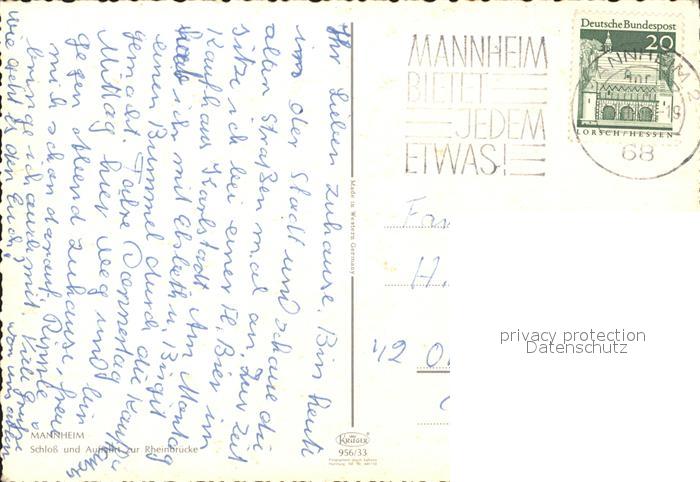 Ihr Lieben zuhause. Bin heute
in der Stadt und schaue die
alten Straßen mal an. Zur Zeit
sitze ich bei einer Fl. Bier im
Kaufhaus Karstadt. Am Montag
hab ich mit Elsbeth u. Birgit
einen Bummel durch die Kaufh.
gemacht. Fahre Donnerstag
Mittag hier weg und bin
gegen Abend zuhause, freu
mich schon darauf.
bringe ich auch mit. Viele Grüße
wie geht es
MANNHEIM
Schloß und Auffahrt zur Rheinbrücke
Made in Western Germany
KRÜGER
956/33
MANNHEIM
BIETET
JEDEM
ETWAS!
Deutsche Bundespost
20
LORSCH/HESSEN
68
Fam
H.
42 O
privacy protection
Datenschutz